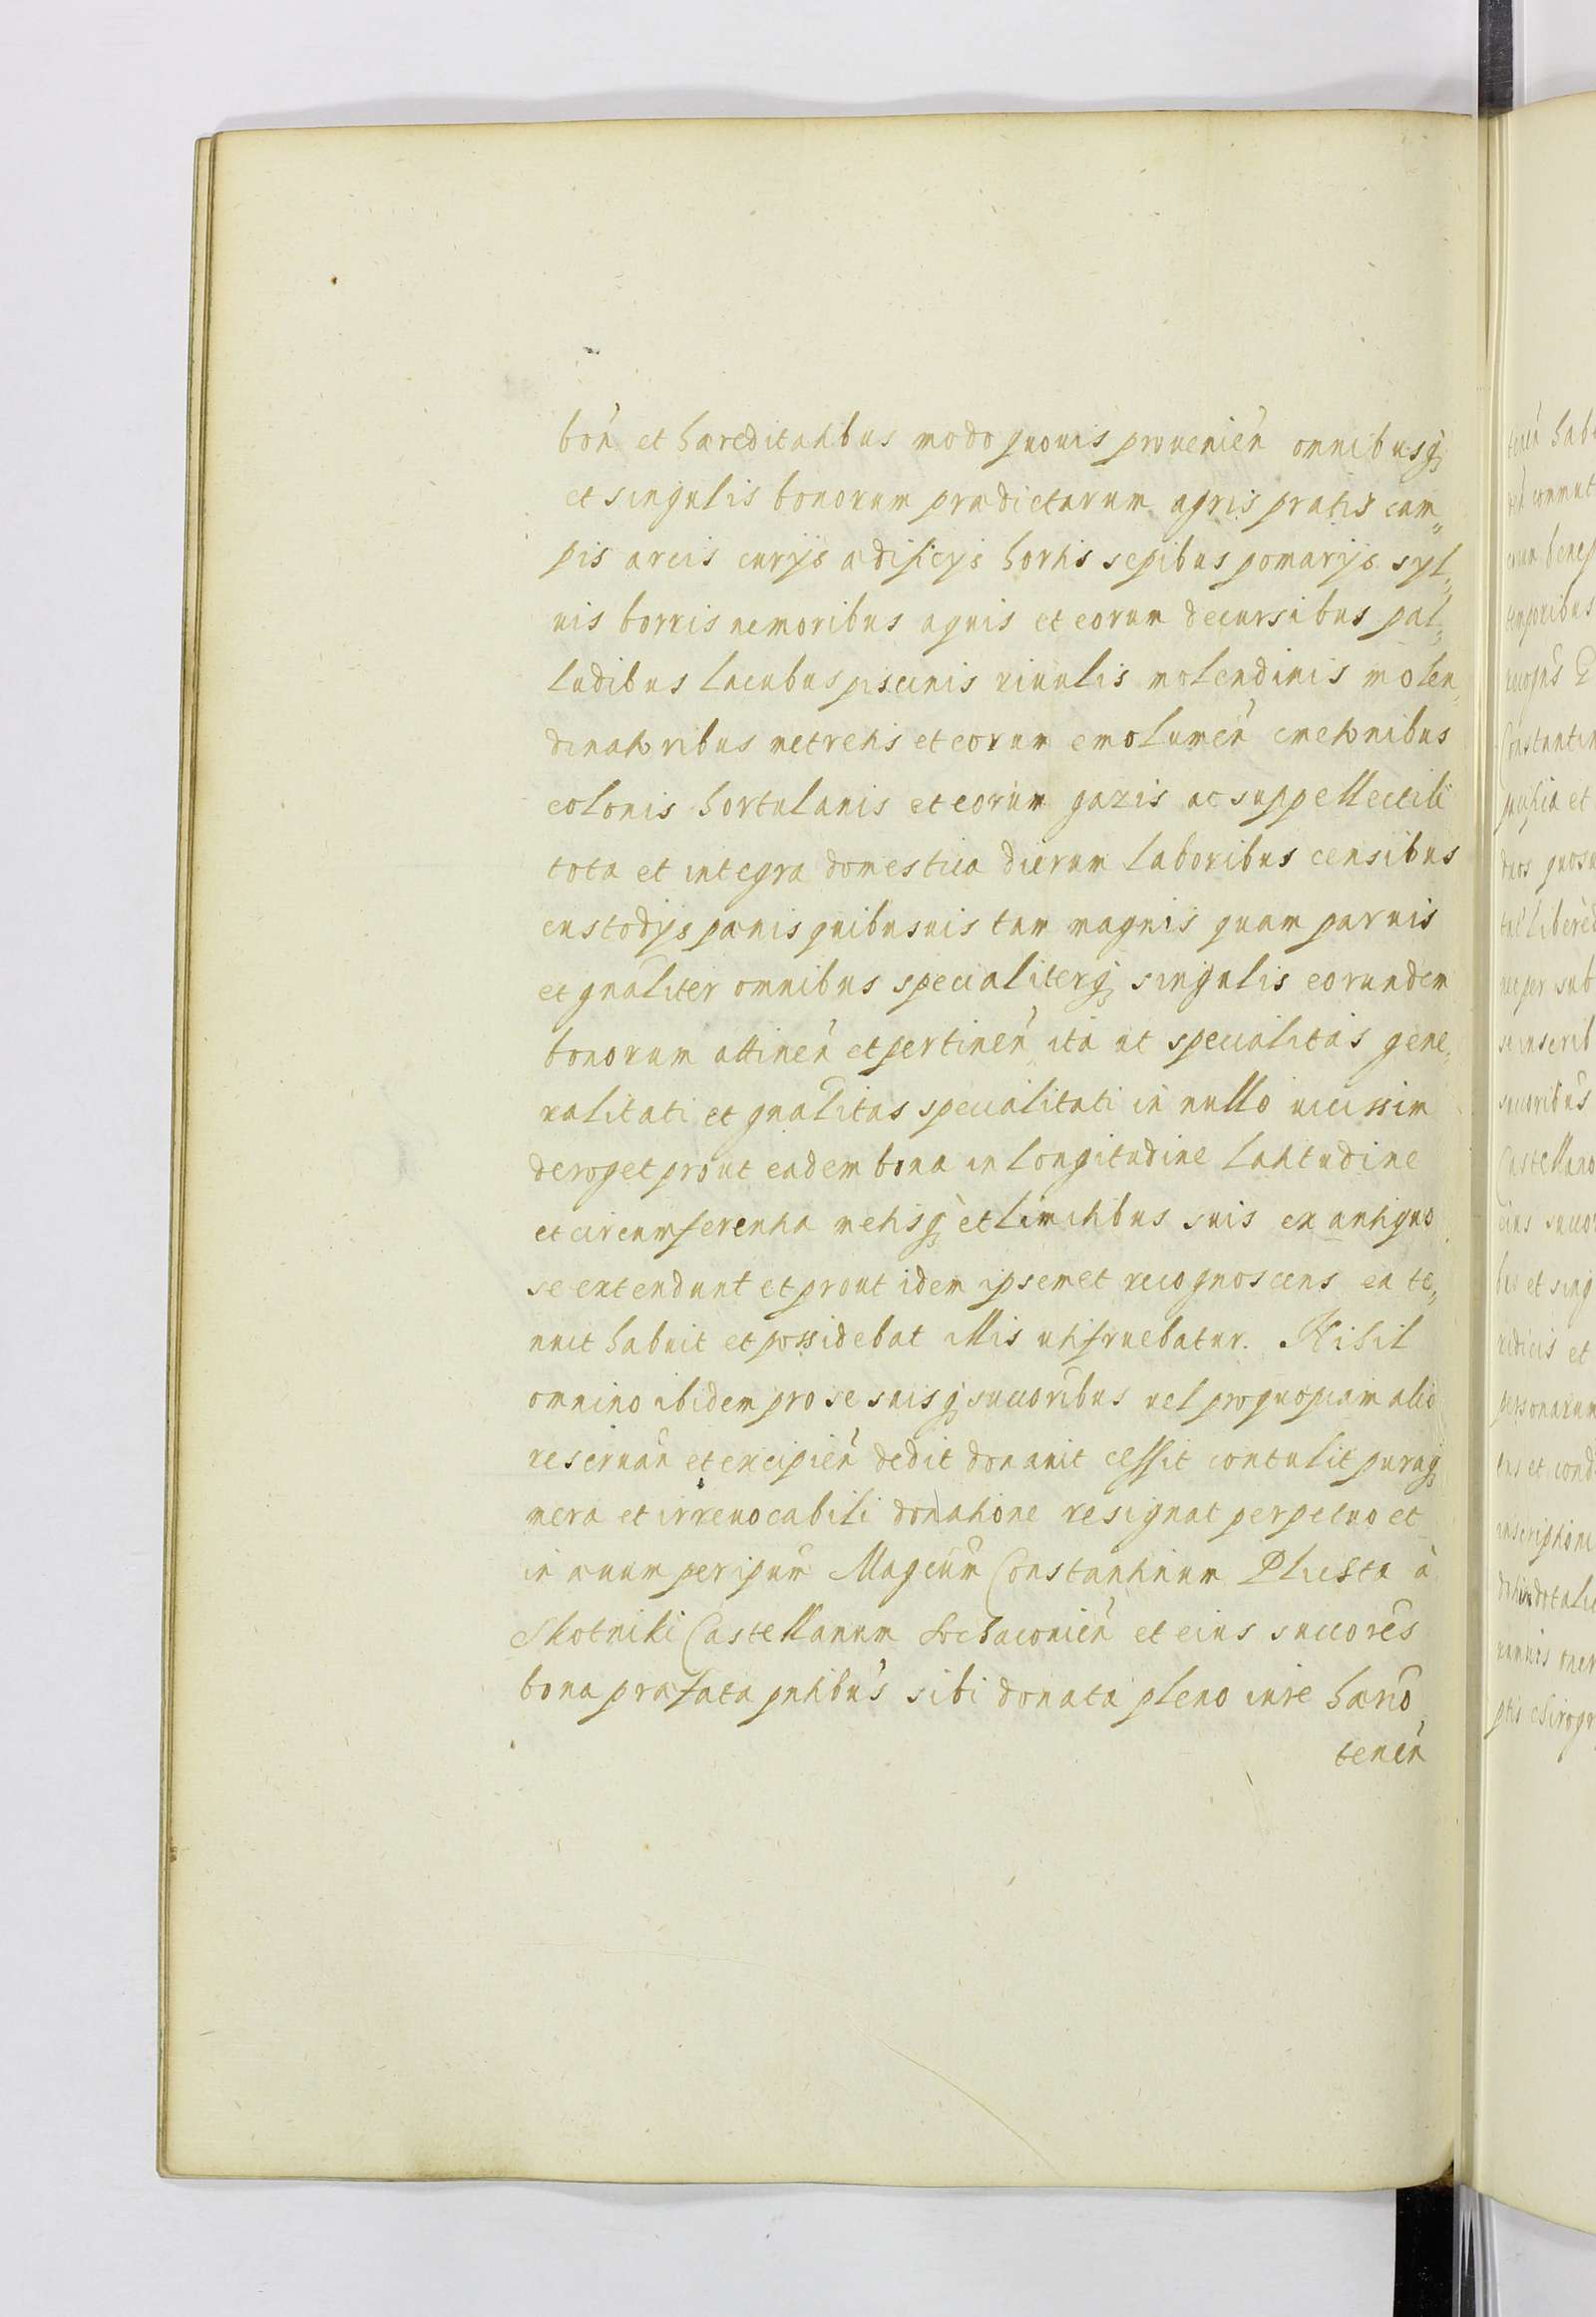 boń et hæreditatibus modo quouis prouenień omnibusq̣
et singulis bonorum prædictarum agris pratis cam„
pis areis curijs ædificijs hortis sepibus pomarijs syl„
uis borris nemoribus aquis et eorum decursibus pal„
ludibus lacubus piscinis riuulis molendinis molen„
dinatoribus metretis et eorum emolumeń cmetonibus
colonis hortulanis et eorum gazis ac suppellectili
tota et integra domestica dierum laboribus censibus
custodijs pænis quibusuis tam magnis quam paruis
et gnaliter omnibus specialiterq̣ singulis eorundem
bonorum attineń et pertineń ita ut specialitas gene„
ralitati et gnalitas specialitati in nullo uicissim
deroget prout eadem bona in longitudine latitudine
et circumferentia metisq̣ et limitibus suis ex antiquo
se extendunt et prout idem ipsemet recognoscens ea te„
nuit habuit et possidebat illis utifruebatur. Nihil
omnino ibidem pro se suisq̣ succoribus uel pro quopiam alio
reseruań et excipień dedit donauit cessit contulit puraq̣
mera et irreuocabili donatione resignat perpetuo et
in æuum per ipum Magcum Constantinum Plichta à
Skotniki Castellanum Sochaconień et eius succores
bona præfata pntibus sibi donata pleno iure hærio
teneń
teneń hab
commut
benep
temporibus
recogns
Constantin
et
duos quosu
tal libere
per sub
se inscrib
succoribus
Castellano
eius succor
bus et sing
ridicis et
personarum
et cond
inscriptioni
dotali

chirogr